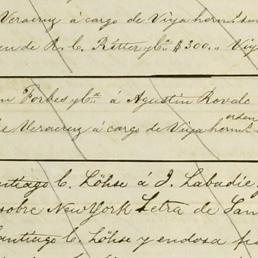 Veracruz á cargo de Viya herm.
en de A. C. Ritter y C.ª $300.. Viy
n Forbes y C.ª á Agustin Rovalo
orden
de Veracruz á cargo de Viya herm.
ntiago C. Löhse á J. Labadie y
sobre New York Letra de San
Santiago C. Löhse y endosa